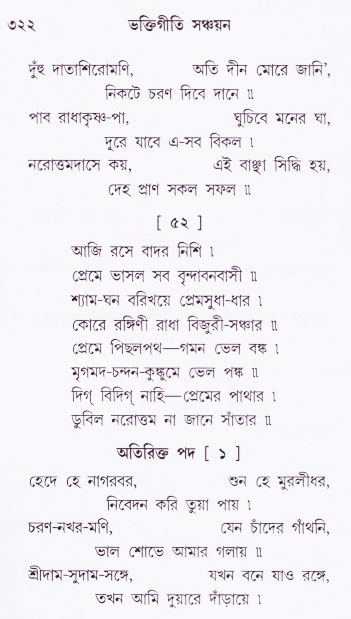 ৩২২ ভক্তিগীতি সঞ্চয়ন
দুঁহু দাতাশিরোমণি, অতি দীন মোরে জানি’,
নিকটে চরণ দিবে দানে ॥
পাব রাধাকৃষ্ণ-পা, ঘুচিবে মনের ঘা,
দূরে যাবে এ-সব বিকল ।
নরোত্তমদাসে কয়, এই বাঞ্ছা সিদ্ধি হয়,
দেহ প্রাণ সকল সফল ॥
[ ৫২ ]
আজি রসে বাদর নিশি ।
প্রেমে ভাসল সব বৃন্দাবনবাসী ॥
শ্যাম-ঘন বরিখয়ে প্রেমসুধা-ধার ।
কোরে রঙ্গিণী রাধা বিজুরী-সঞ্চার ॥
প্রেমে পিছলপথ—গমন ভেল বঙ্ক ।
মৃগমদ-চন্দন-কুঙ্কুমে ভেল পঙ্ক ॥
দিগ্ বিদিগ্ নাহি—প্রেমের পাথার ।
ডুবিল নরোত্তম না জানে সাঁতার ॥
অতিরিক্ত পদ [ ১ ]
হেদে হে নাগরবর, শুন হে মুরলীধর,
নিবেদন করি তুয়া পায় ।
চরণ-নখর-মণি, যেন চাঁদের গাঁথনি,
ভাল শোভে আমার গলায় ॥
শ্রীদাম-সুদাম-সঙ্গে, যখন বনে যাও রঙ্গে,
তখন আমি দুয়ারে দাঁড়ায়ে ।